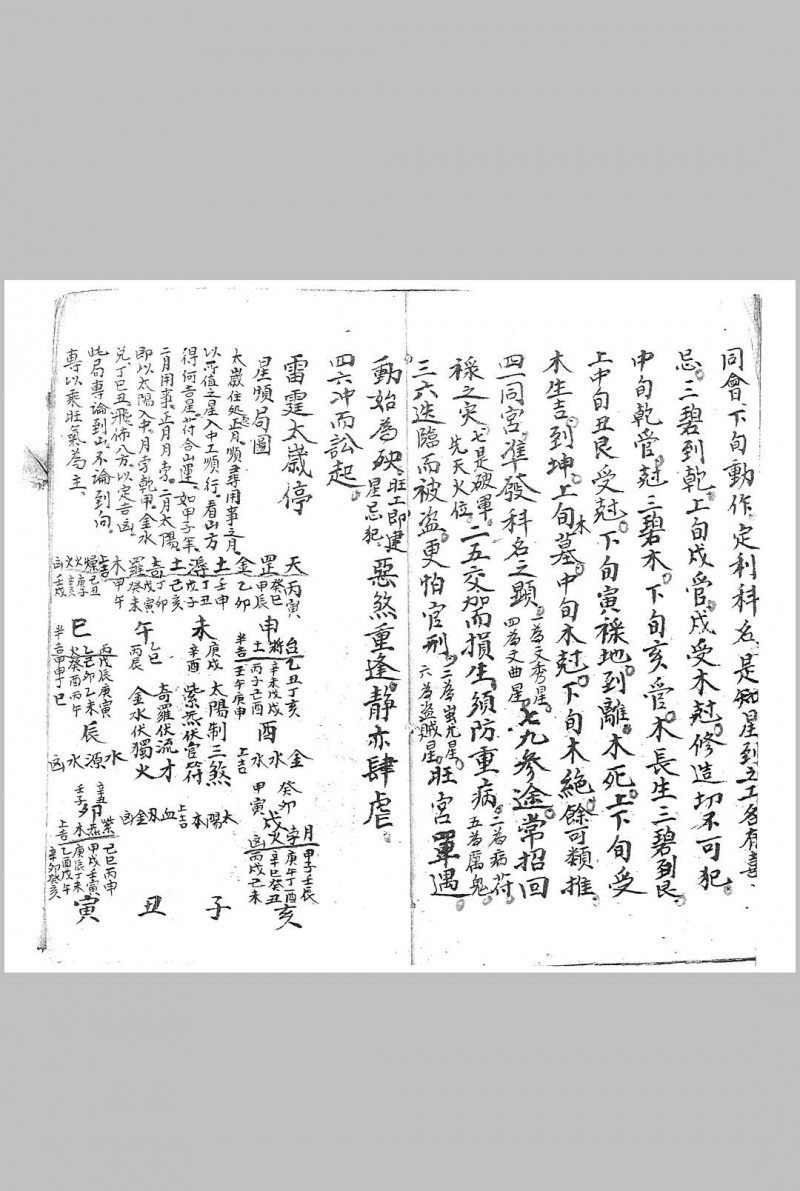 同會、下旬動作、定利科名、是知星到之工各有喜、
忌。三碧到乾、上旬戌管。戌受木尅。修造切不可犯。
中旬乾管。尅三碧木。下旬亥管。木長生三碧到艮、
上中旬丑艮受尅。下旬寅祿地到離、木死上下旬受
木生吉。到坤、上旬墓。中旬木尅。下旬木絕。餘可類推。
四一同宮。準發科名之顯。一為文秀星。四為文曲星。七九参途。常招回
祿之灾。七是破軍。先天火位。二五交加而損生。須防重病。二為病符。五為厲鬼。
三六迭臨而被盗。更怕官刑。三為蚩尤星。六為盗賊星。旺宮單遇。
動始為殃。旺工即建星忌犯。惡煞重逢。靜亦肆虐
四六冲而訟起。
雷霆太歲停
星順局圖
太歲住処起正月。順尋用事之月。
以所值之星入中工順行。看山方
得何吉星。符合山運、如甲子年、
二月用事。正月月孛。二月太陽、
即以太陽入中。月孛乾甲。金水
兑、丁巳丑。飛佈八方。以定吉凶。
此局專論到山。不論到向。
專以乘旺氣為主、
天 丙寅
罡 癸巳 甲辰
金 乙卯
土 壬申
濤 丁丑 戊子
土 己亥
奇 丁卯 戊寅
羅 癸未
木 甲午
上吉
燥 己丑
火 庚子 辛亥
凶 壬戌
申 未 午 巳
台 乙丑丁亥
將 辛未戊戌
土 丙子己酉
半吉 壬午庚申
庚戌 辛酉
太陽制三煞
紫炁伏官符
乙巳 丙辰
奇羅伏流才
金水伏獨火
丙戊辰庚寅
乙己卯乙未
火癸酉丙午
半吉甲申丁巳
酉 辰
金
水
水
上吉
水
源
水
凶
癸卯
甲寅
戌
月 甲子壬辰
孛 庚午丁酉
火 辛巳癸丑
凶 丙戌己未
太陽本上吉
血刃金凶
辛丑
壬子
卯
紫 己巳丙申
炁 甲戌壬寅
木 庚辰丁未
上吉 乙酉戊午
辛卯癸亥
亥 子 丑 寅